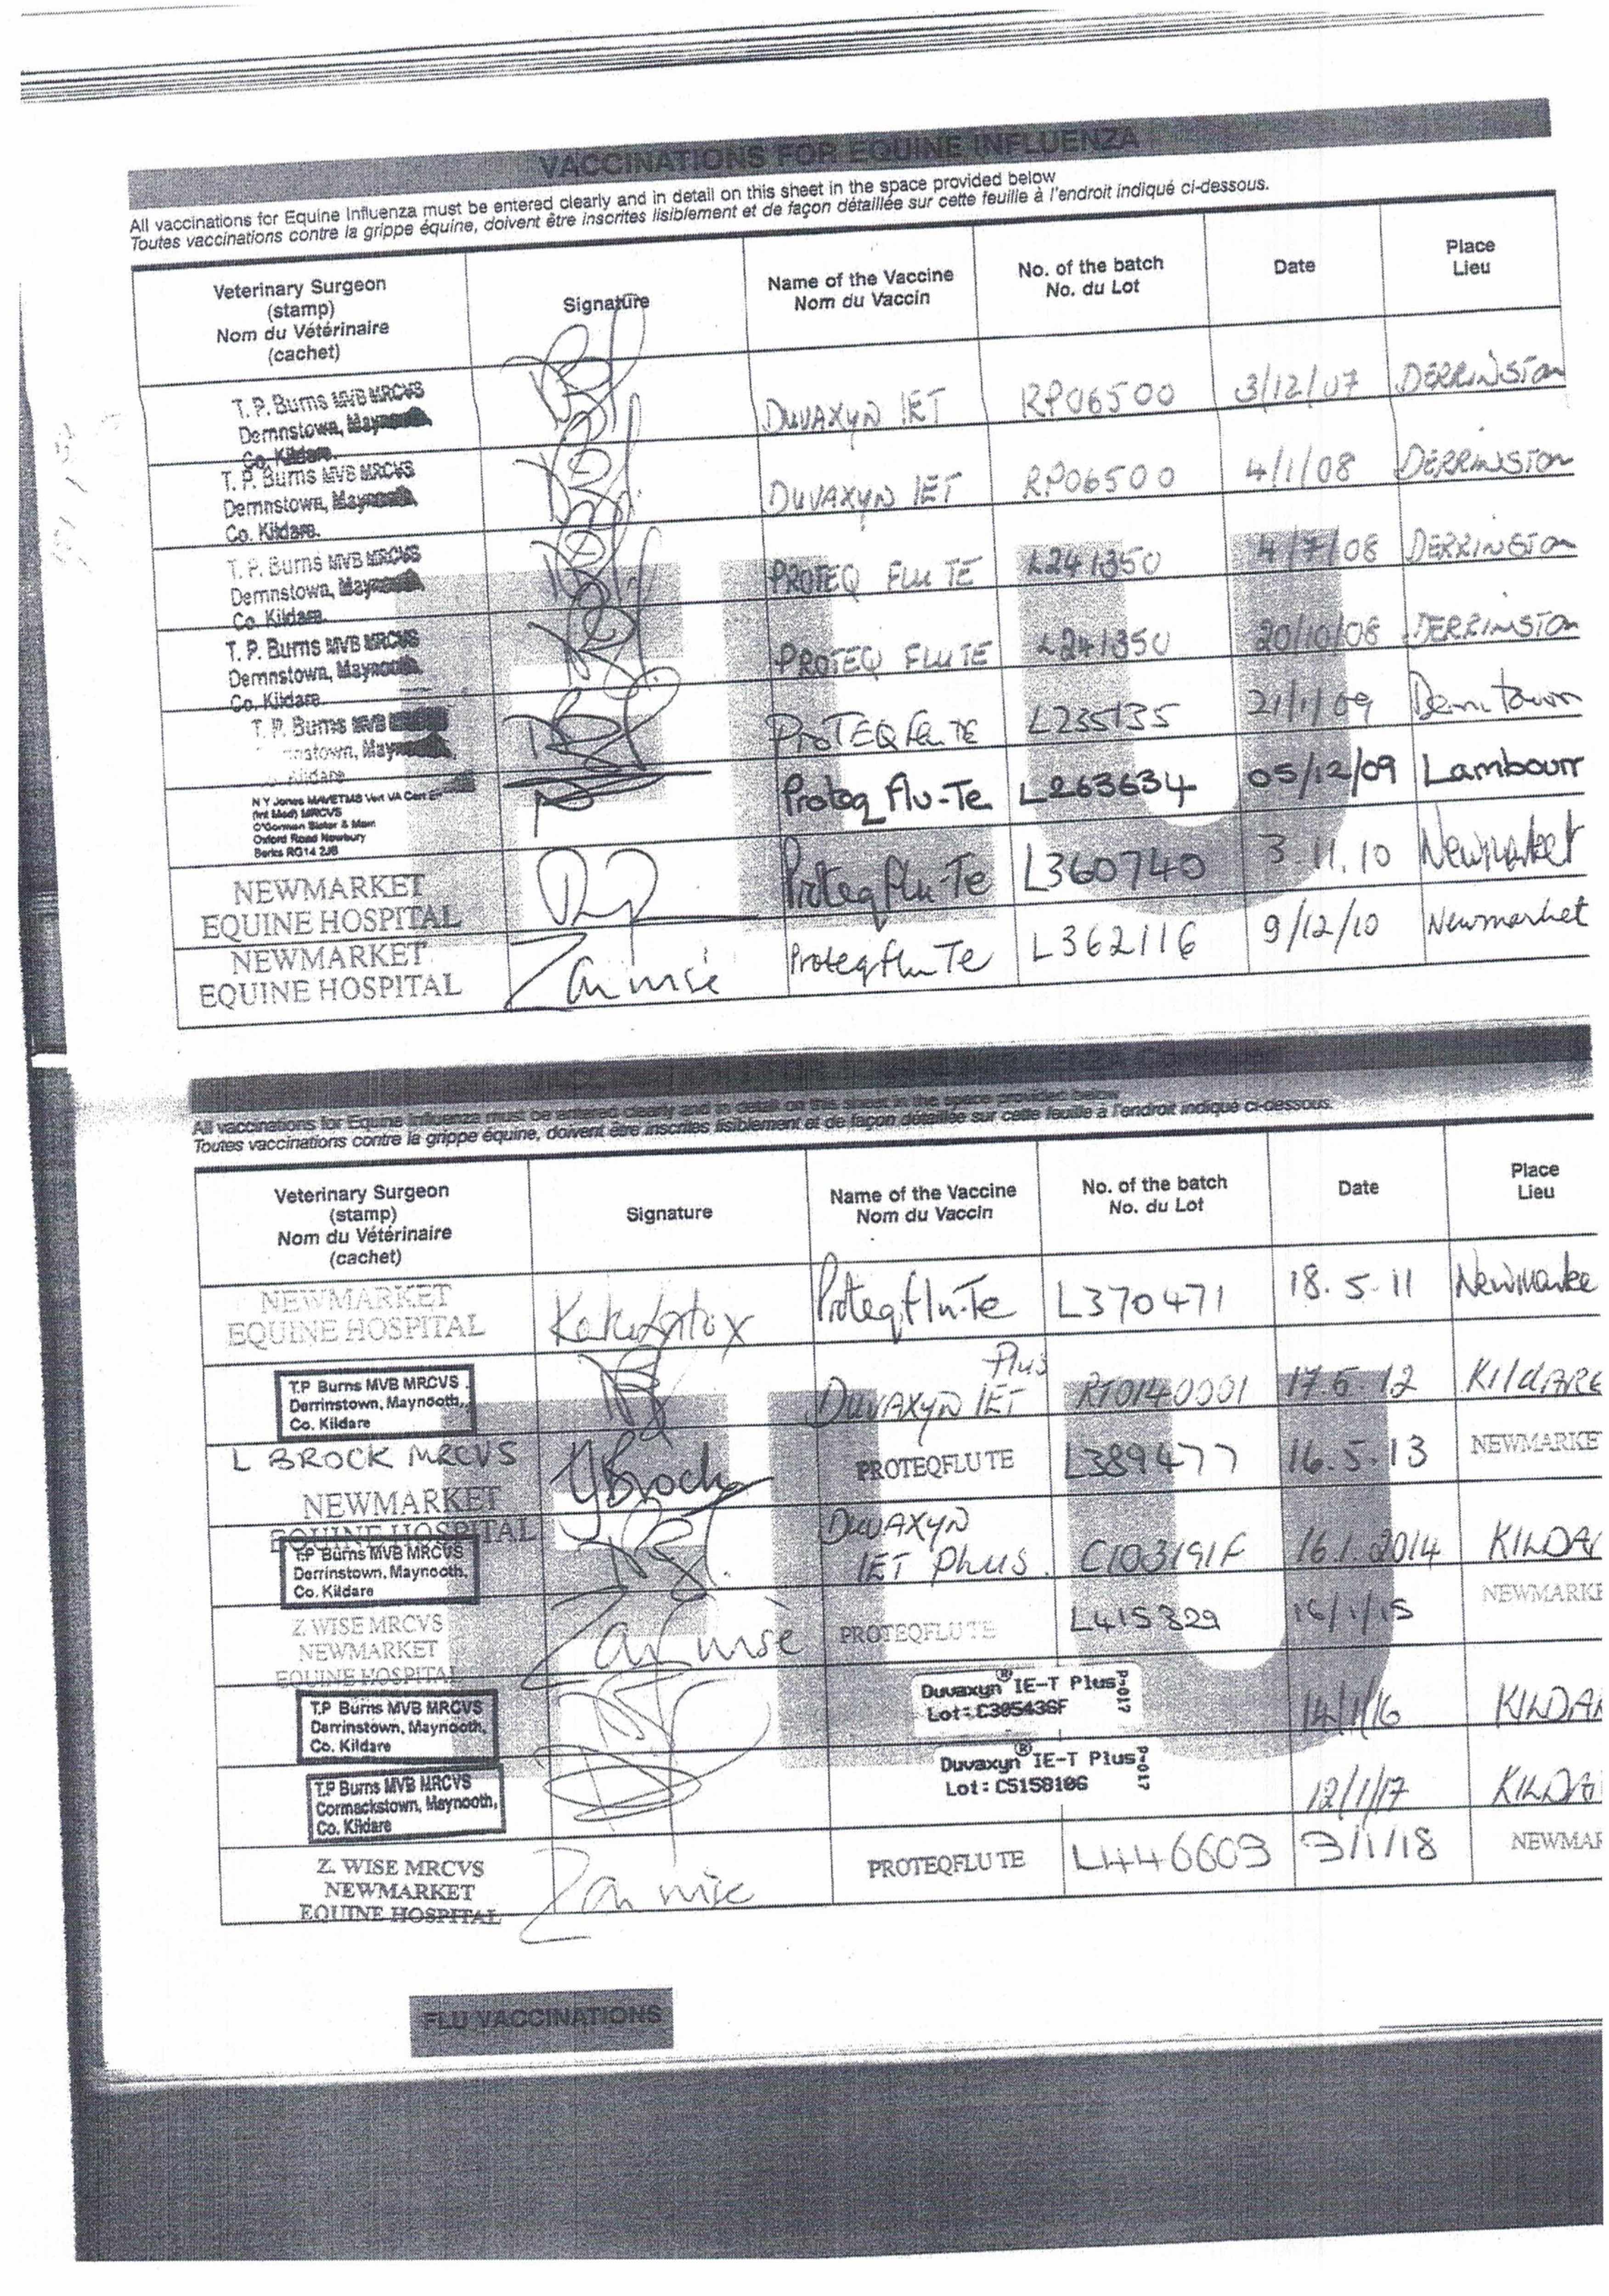 VACCINATIONS FOR EQUINE INFLUENZA
All vaccinations for Equine Influenza must be entered clearly and in detail on this sheet in the space provided below
Toutes vaccinations contre la grippe équine, doivent être inscrites lisiblement et de façon détaillée sur cette feuille à l'endroit indiqué ci-dessous.
Veterinary Surgeon
(stamp)
Nom du Vétérinaire
(cachet)
Signature
Name of the Vaccine
Nom du Vaccin
No. of the batch
No. du Lot
Date
Place
Lieu
T. P. Burns MVB MRCVS
Derrinstown, Maynooth,
Co. Kildare.
DUVAXYN IET RP06500 3/12/07
T. P. Burns MVB MRCVS
Derrinstown, Maynooth,
Co. Kildare.
DUVAXYN IET RP06500 4/1/08
T. P. Burns MVB MRCVS
Derrinstown, Maynooth,
Co. Kildare.
PROTEQ FLU TE L241350 4/7/08
T. P. Burns MVB MRCVS
Derrinstown, Maynooth,
Co. Kildare.
PROTEQ FLU TE L241350 20/10/08
T. P. Burns MVB
L235135 21/1/09
N Y Jones MAVETMB Vert VA Cert
(Int Med) MRCVS
O'Gorman Slater & Main
Oxford Road Newbury
Berks RG14 2JB
Proteq Flu-Te L263634 05/12/09 Lambourn
NEWMARKET
EQUINE HOSPITAL
Proteqflu-Te L360740 3.11.10 Newmarket
NEWMARKET
EQUINE HOSPITAL
Proteqflu Te L362116 9/12/10 Newmarket
All vaccinations for Equine Influenza must be entered clearly and in detail on this sheet in the space provided below
Toutes vaccinations contre la grippe équine, doivent être inscrites lisiblement et de façon détaillée sur cette feuille à l'endroit indiqué ci-dessous.
Veterinary Surgeon
(stamp)
Nom du Vétérinaire
(cachet)
Signature
Name of the Vaccine
Nom du Vaccin
No. of the batch
No. du Lot
Date
Place
Lieu
NEWMARKET
EQUINE HOSPITAL
Proteqflu-Te L370471 18.5.11 Newmarke
T.P Burns MVB MRCVS
Derrinstown, Maynooth,
Co. Kildare
Plus
DUVAXYN IET RT0140001 17.5.12 KILDARE
L BROCK MRCVS
NEWMARKET
EQUINE HOSPITAL
PROTEQFLUTE L389477 16.5.13 NEWMARKE
T.P Burns MVB MRCVS
Derrinstown, Maynooth,
Co. Kildare
DUVAXYN
IET Plus C103191F 16.1.2014 KILDA
Z. WISE MRCVS
NEWMARKET
EQUINE HOSPITAL
PROTEQFLUTE L415329 16/1/15 NEWMARKE
T.P Burns MVB MRCVS
Derrinstown, Maynooth,
Co. Kildare
Duvaxyn® IE-T Plus P-017
Lot: C305436F
14/1/16 KILDA
T.P Burns MVB MRCVS
Cormackstown, Maynooth,
Co. Kildare
Duvaxyn® IE-T Plus P-017
Lot: C515810G
12/1/17 KILDA
Z. WISE MRCVS
NEWMARKET
EQUINE HOSPITAL
PROTEQFLUTE L446603 3/1/18 NEWMAR
FLU VACCINATIONS